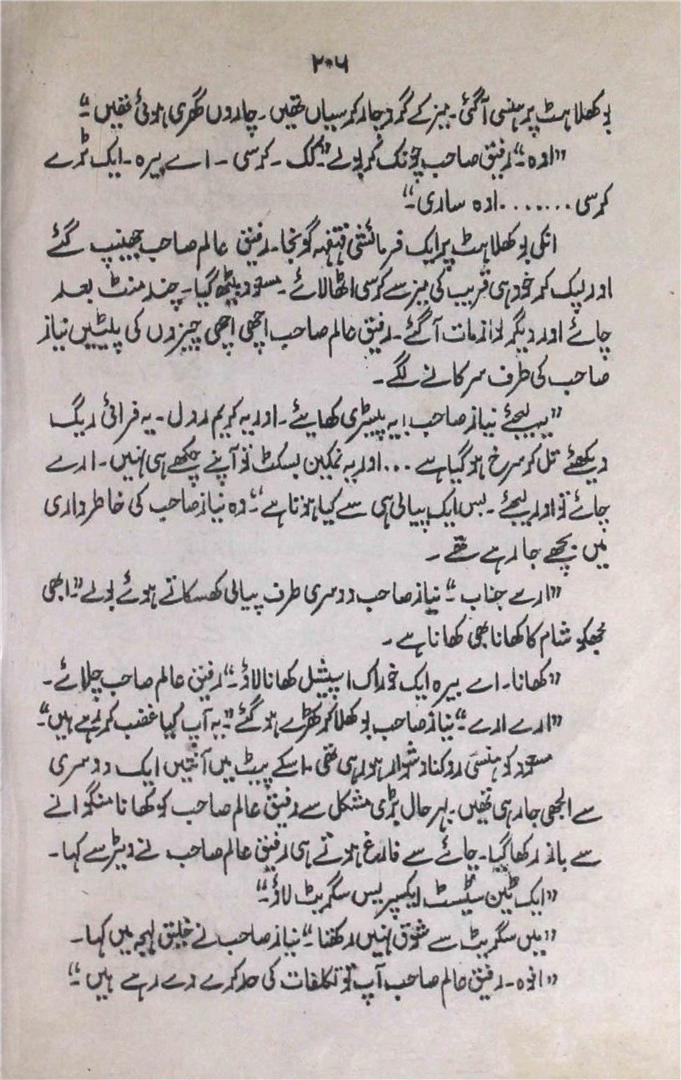 ۲۰۶
بوکھلاہٹ پر ہنسی آگئی۔ میز کے گرد چار کرسیاں تھیں۔ چاروں گھری ہوئی تھیں۔"
"اوہ۔" رفیق صاحب چونک کر بولے "کک۔ کرسی۔ اے بیرہ۔ ایک ٹرے
کرسی....... اوہ ساری۔"
انکی بوکھلاہٹ پر ایک فرمائشی قہقہہ گونجا۔ رفیق عالم صاحب جھینپ گئے
اور لپک کر خود ہی قریب کی میز سے کرسی اٹھا لائے۔ مسعود بیٹھ گیا۔ چند منٹ بعد
چائے اور دیگر لوازمات آگئے۔ رفیق عالم صاحب اچھی اچھی چیزوں کی پلیٹیں نیاز
صاحب کی طرف سرکانے لگے۔
"یہ لیجئے نیاز صاحب! یہ پیسٹری کھایئے۔ اور یہ کریم رول۔ یہ فرائی ایگ
دیکھئے تل کر سرخ ہو گیا ہے... اور یہ نمکین بسکٹ تو آپنے چکھے ہی نہیں۔ ارے
چائے تو اور لیجئے۔ بس ایک پیالی ہی سے کیا ہوتا ہے" وہ نیاز صاحب کی خاطرداری
میں بچھے جا رہے تھے۔
"ارے جناب۔" نیاز صاحب دوسری طرف پیالی کھسکاتے ہوئے بولے "ابھی
مجھکو شام کا کھانا بھی کھانا ہے۔
"کھانا۔ اے بیرہ ایک خوراک اسپیشل کھانا لاؤ۔" رفیق عالم صاحب چلائے۔
"ارے ارے۔" نیاز صاحب بوکھلا کر کھڑے ہو گئے "یہ آپ کیا غضب کر رہے ہیں"
مسعود کو ہنسی روکنا دشوار ہو رہی تھی۔ اسکے پیٹ میں آنتیں ایک دوسری
سے الجھی جا رہی تھیں۔ بہر حال بڑی مشکل سے رفیق عالم صاحب کو کھانا منگوانے
سے باز رکھا گیا۔ چائے سے فارغ ہوتے ہی رفیق عالم صاحب نے ویٹر سے کہا۔
"ایک ٹین سٹیٹ ایکسپریس سگریٹ لاؤ۔"
"میں سگریٹ سے شوق نہیں رکھتا۔" نیاز صاحب نے خلیق لہجہ میں کہا۔
"اوہ۔ رفیق عالم صاحب آپ تو تکلفات کی حد کرے دے رہے ہیں۔"